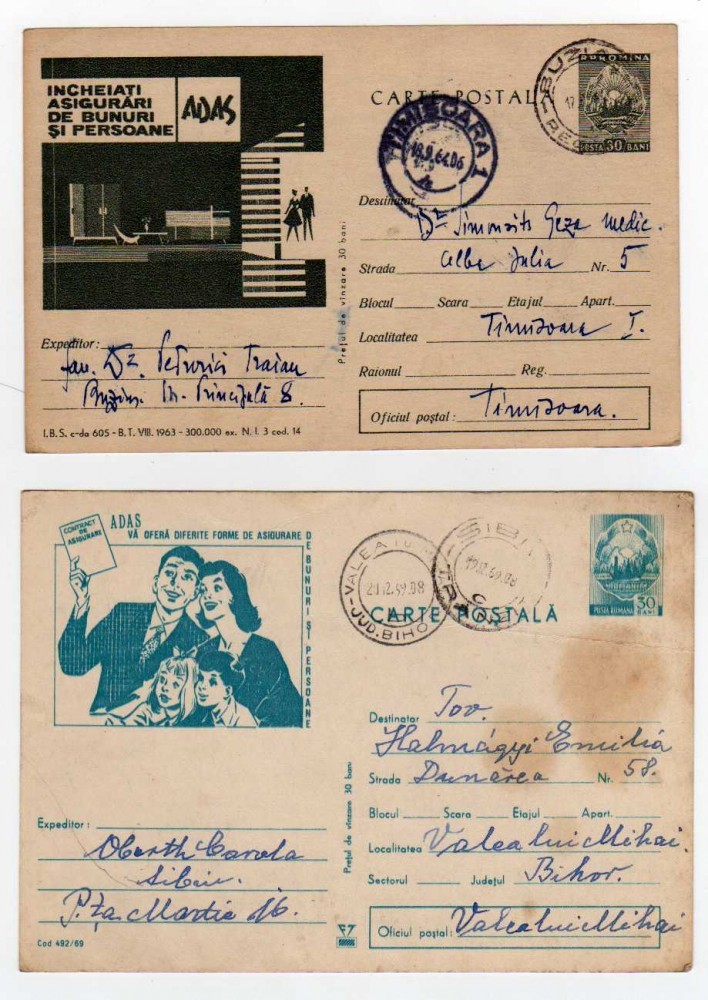 INCHEIAȚI
ASIGURĂRI
DE BUNURI
ȘI PERSOANE
ADAS
CARTE POSTALĂ
R.P.ROMINA
POSTA 30 BANI
BUZIAȘ
TIMIȘOARA 1
18.9.64.06
Destinatar Dr Simonovits Geza medic.
Strada Alba Julia Nr. 5
Blocul Scara Etajul Apart.
Localitatea Timișoara I.
Raionul Reg.
Oficiul poștal: Timișoara.
Prețul de vînzare 30 bani
Expeditor:
Dr. Petrovici Traian
Buziaș Principală 8.
I.B.S. c-da 605 - B.T. VIII. 1963 - 300.000 ex. N. I. 3 cod. 14
CONTRACT
DE
ASIGURARE
ADAS
VĂ OFERĂ DIFERITE FORME DE ASIGURARE DE BUNURI ȘI PERSOANE
VALEA LUI M
JUD. BIHO
SIBIU
CARTE POSTALĂ
POSTA ROMANA 30 BANI
Destinatar Tov.
Halmágyi Emilia
Strada Dunărea Nr. 58.
Blocul Scara Etajul Apart.
Localitatea Valea lui Mihai.
Sectorul Județul Bihor.
Oficiul poștal: Valea lui Mihai
Prețul de vînzare 30 bani
Expeditor:
Oberth Carola
Sibiu.
P.ța Martie 16.
Cod 492/69